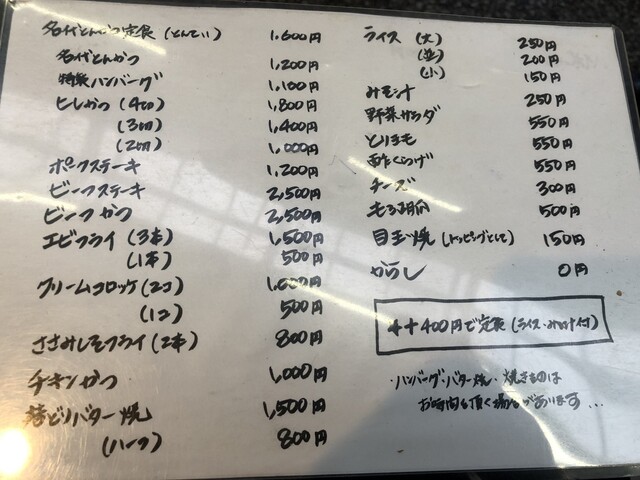 名代とんかつ定食(とんてい) 1,600円
名代とんかつ 1,200円
特製ハンバーグ 1,100円
ヒレかつ(4切) 1,800円
(3切) 1,400円
(2切) 1,000円
ポークステーキ 1,200円
ビーフステーキ 2,500円
ビーフかつ 2,500円
エビフライ(3本) 1,500円
(1本) 500円
クリームコロッケ(2コ) 1,000円
(1コ) 500円
ささみしそフライ(2本) 800円
チキンかつ 1,000円
若どりバター焼 1,500円
(ハーフ) 800円
ライス(大) 250円
(並) 200円
(小) 150円
みそ汁 250円
野菜サラダ 550円
とりもも 550円
酢くらげ 550円
チーズ 300円
もろ胡瓜 500円
目玉焼(トッピングとして) 150円
からし 0円
++400円で定食(ライス・みそ汁付)
・ハンバーグ・バター焼・焼きものは
お時間を頂く場合があります...